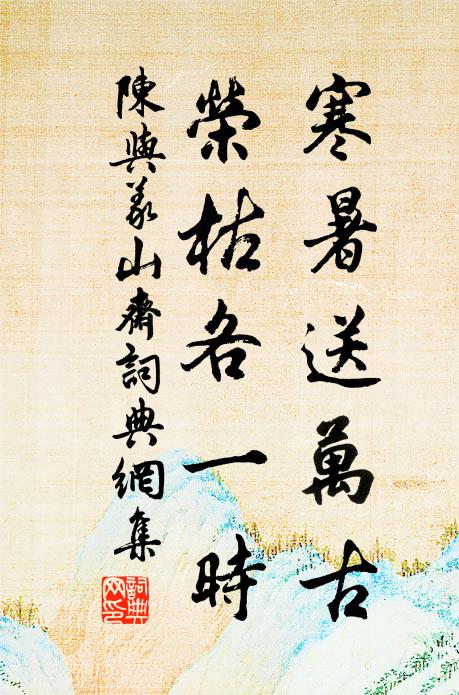 寒暑送萬古
榮枯各一時
陳與義山齋詞典網集
詞典网印